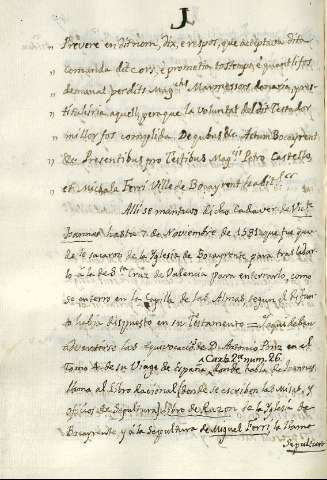 J
" Prevere en dit nom, dix, e respos, que aceptava dita
" comanda del cors, e prometia tostemps, e quant li fos
" demanat per dits Mag.chs Marmessors, donaria, y res-
" tituhiria aquell, pera que la voluntat del dit Testador
" millor fos complida. De quibus &c. Actum Bocayrent
" &c. Presentibus pro Testibus Mag.ch Petro Castello,
" et Michaele Ferri Villae de Bocayrent habit.ber
Alli se mantuvo dicho Cadaver de Vic.te
Joannes hasta 7 de Noviembre de 1581 que fue quan-
do le sacaron de la Yglesia de Bocayrente para trasladar-
lo á la de S.ta Cruz de Valencia para enterrarlo, como
se enterro en la Capilla de las Almas, segun el difun-
to habia dispuesto en su Testamento = Y aqui deben
advertirse las equivocacio.s de D. Antonio Ponz en el
Tomo 4. de su Viage de España, donde habla de Joannes,
Carta 2.a num. 26.
llama al Libro Racional (donde se escriben las Misas, y
oficios de Sepultura) Libro de Razon de la Yglesia de
Bocayrente y á la Sepultura de Miguel Ferri, la llama
Sepulcro